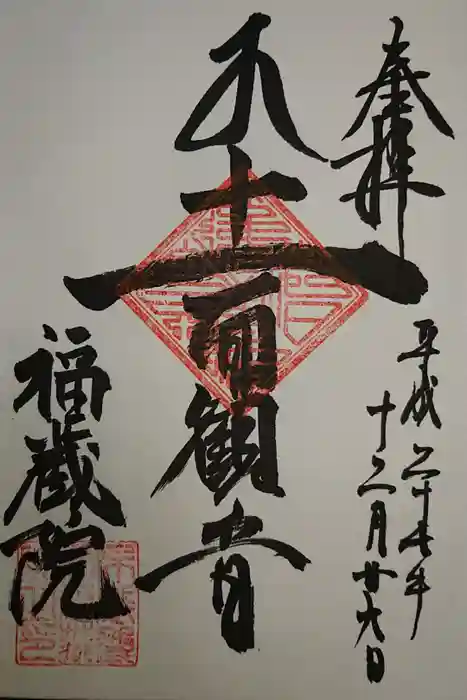 奉拝
平成二十七年
十二月廿六日
十一面観音
福蔵院